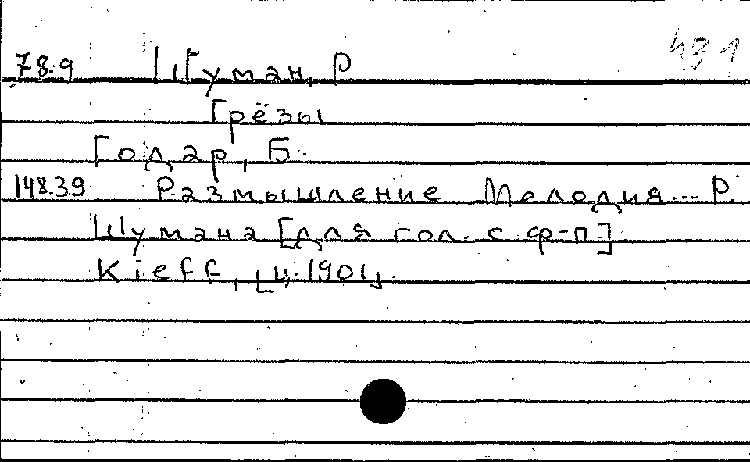 491
78.9 Шуман, Р
Грёзы
Годар, Б.
148.39 Размышление Мелодия... Р.
Шумана [для гол. с ф-п]
Kieff, [ц. 1901]